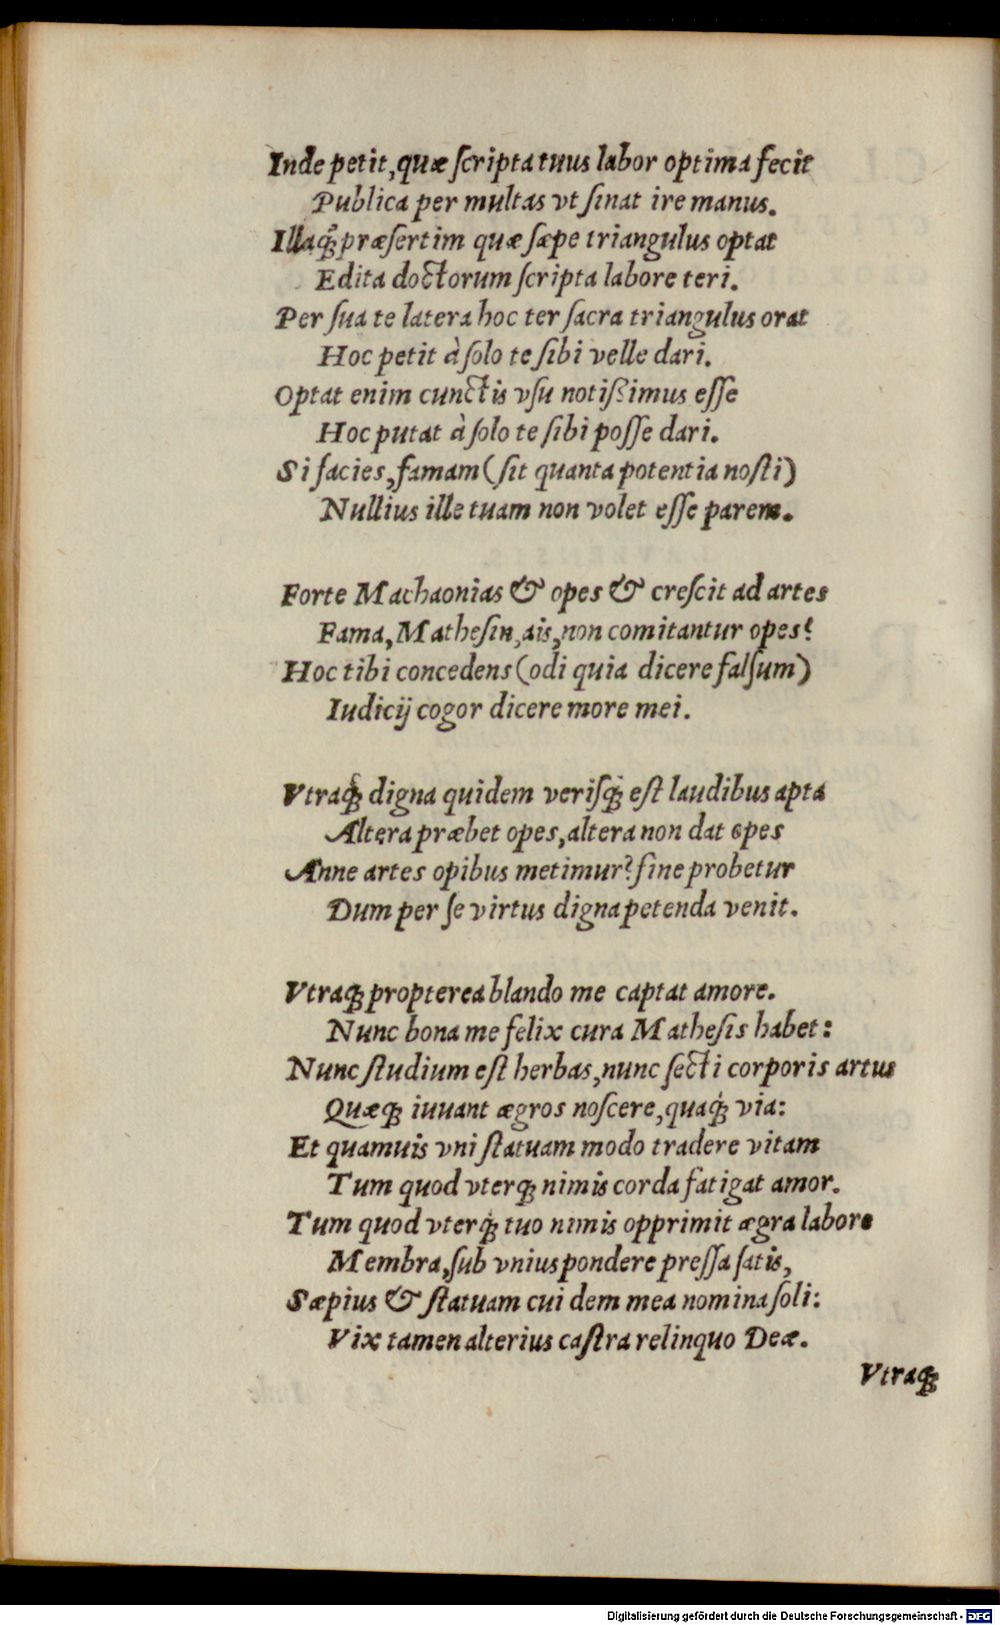 Inde petit, quæ ſcripta tuus labor optima fecit
Publica per multas vt ſinat ire manus.
Illaq́ꝫ præſertim quæ ſæpe triangulus optat
Edita doctorum ſcripta labore teri.
Per ſua te latera hoc ter ſacra triangulus orat
Hoc petit à ſolo te ſibi velle dari.
Optat enim cunctis vſu notißimus eſſe
Hoc putat à ſolo te ſibi poſſe dari.
Si facies, famam (ſit quanta potentia noſti)
Nullius ille tuam non volet eſſe parem.
Forte Machaonias & opes & creſcit ad artes
Fama, Matheſin, ais, non comitantur opes?
Hoc tibi concedens (odi quia dicere falſum)
Iudicij cogor dicere more mei.
Vtraq́ꝫ digna quidem veriſq́ꝫ eſt laudibus apta
Altera præbet opes, altera non dat opes
Anne artes opibus metimur? ſine probetur
Dum per ſe virtus digna petenda venit.
Vtraqꝫ propterea blando me captat amore.
Nunc bona me felix cura Matheſis habet:
Nunc ſtudium eſt herbas, nunc ſecti corporis artus
Quæqꝫ iuuant ægros noſcere, quaq́ꝫ via:
Et quamuis vni ſtatuam modo tradere vitam
Tum quod vterqꝫ nimis corda fatigat amor.
Tum quod vterq́ꝫ tuo nimis opprimit ægra labore
Membra, ſub vnius pondere preſſa ſatis,
Sæpius & ſtatuam cui dem mea nomina ſoli:
Vix tamen alterius caſtra relinquo Deæ.
Vtraqꝫ
Digitalisierung gefördert durch die Deutsche Forschungsgemeinschaft - DFG